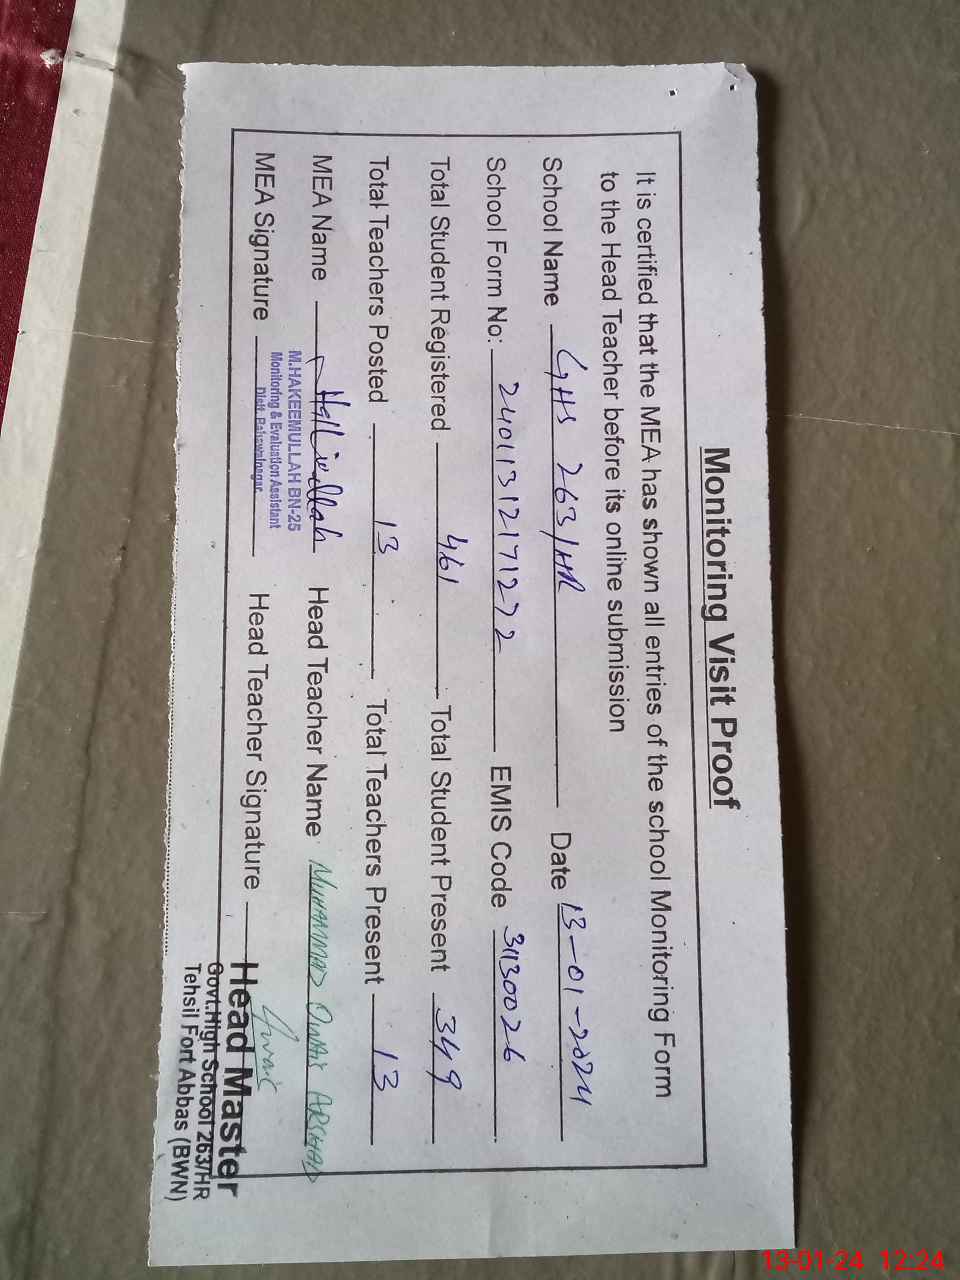 Monitoring Visit Proof
It is certified that the MEA has shown all entries of the school Monitoring Form
to the Head Teacher before its online submission
School Name GHS 263/HR Date 13-01-2024
School Form No: 24011312171272 EMIS Code 31130026
Total Student Registered 461 Total Student Present 349
Total Teachers Posted 13 Total Teachers Present 13
MEA Name Head Teacher Name MUHAMMAD OWAIS ARSHAD
M.HAKEEMULLAH BN-25
Monitoring & Evaluation Assistant
Distt. Bahawalnagar
MEA Signature Head Teacher Signature Owais
Head Master
Govt.High School 263/HR
Tehsil Fort Abbas (BWN)
13-01-24 12:24